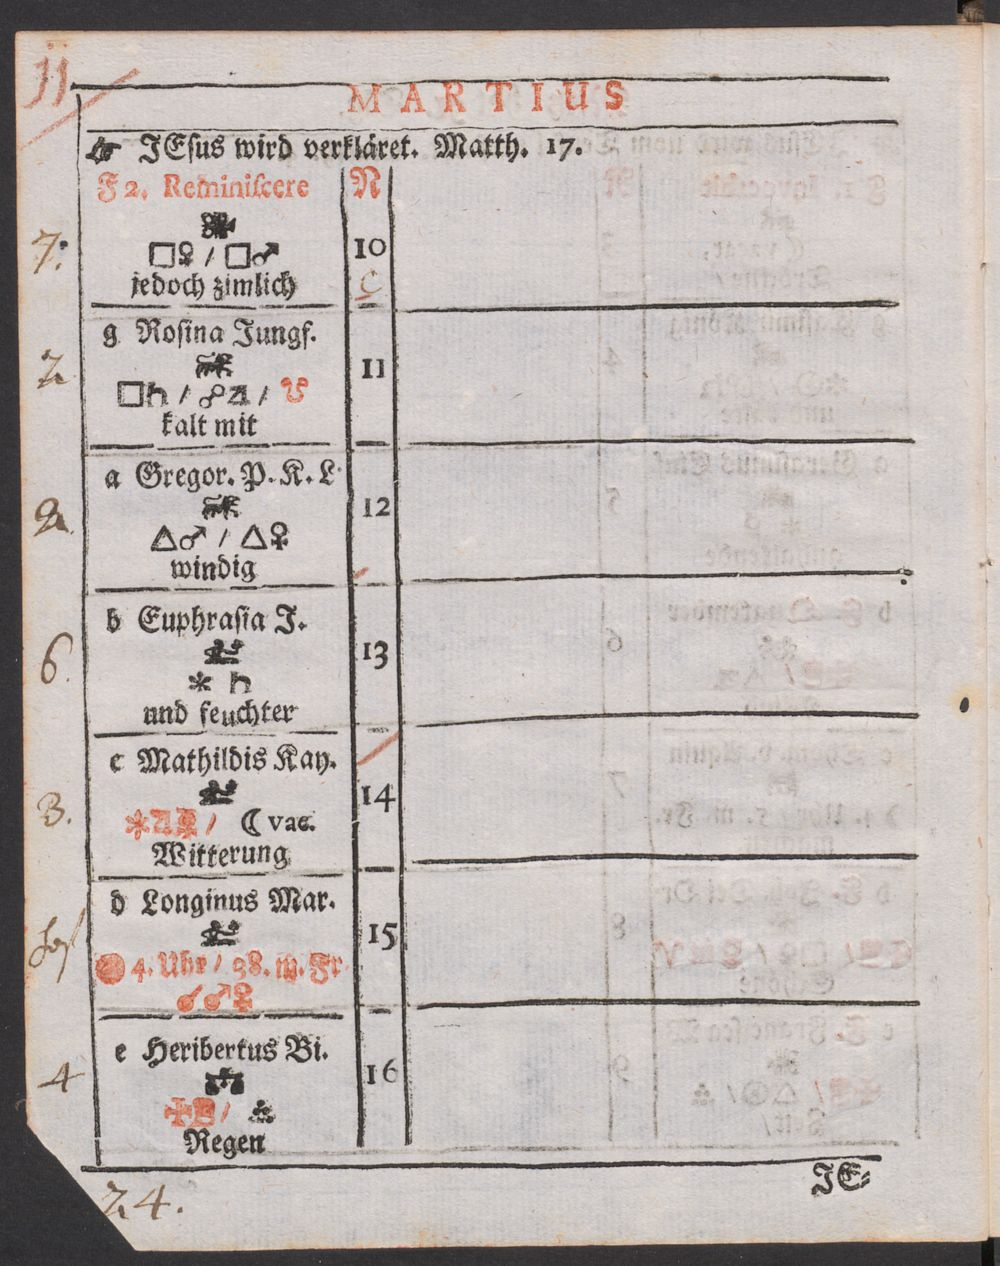 11
MARTIUS
☞ JEsus wird verkläret. Matth. 17.
F 2. Reminiscere N
7. □♀ / □♂ 10
jedoch zimlich C
g Rosina Jungf.
2 □♄ / ☍♃ / ☋ 11
kalt mit
a Gregor. P. K. L
2 △♂ / △♀ 12
windig
b Euphrasia J.
6. ⚹ ♄ 13
und feuchter
c Mathildis Kay.
3. ⚹♃ / ☾ vac. 14
Witterung
d Longinus Mar.
4. Uhr / 38. m. Fr 15
☌♂♀
e Heribertus Bi.
4 16
Regen
JE⸗
24.